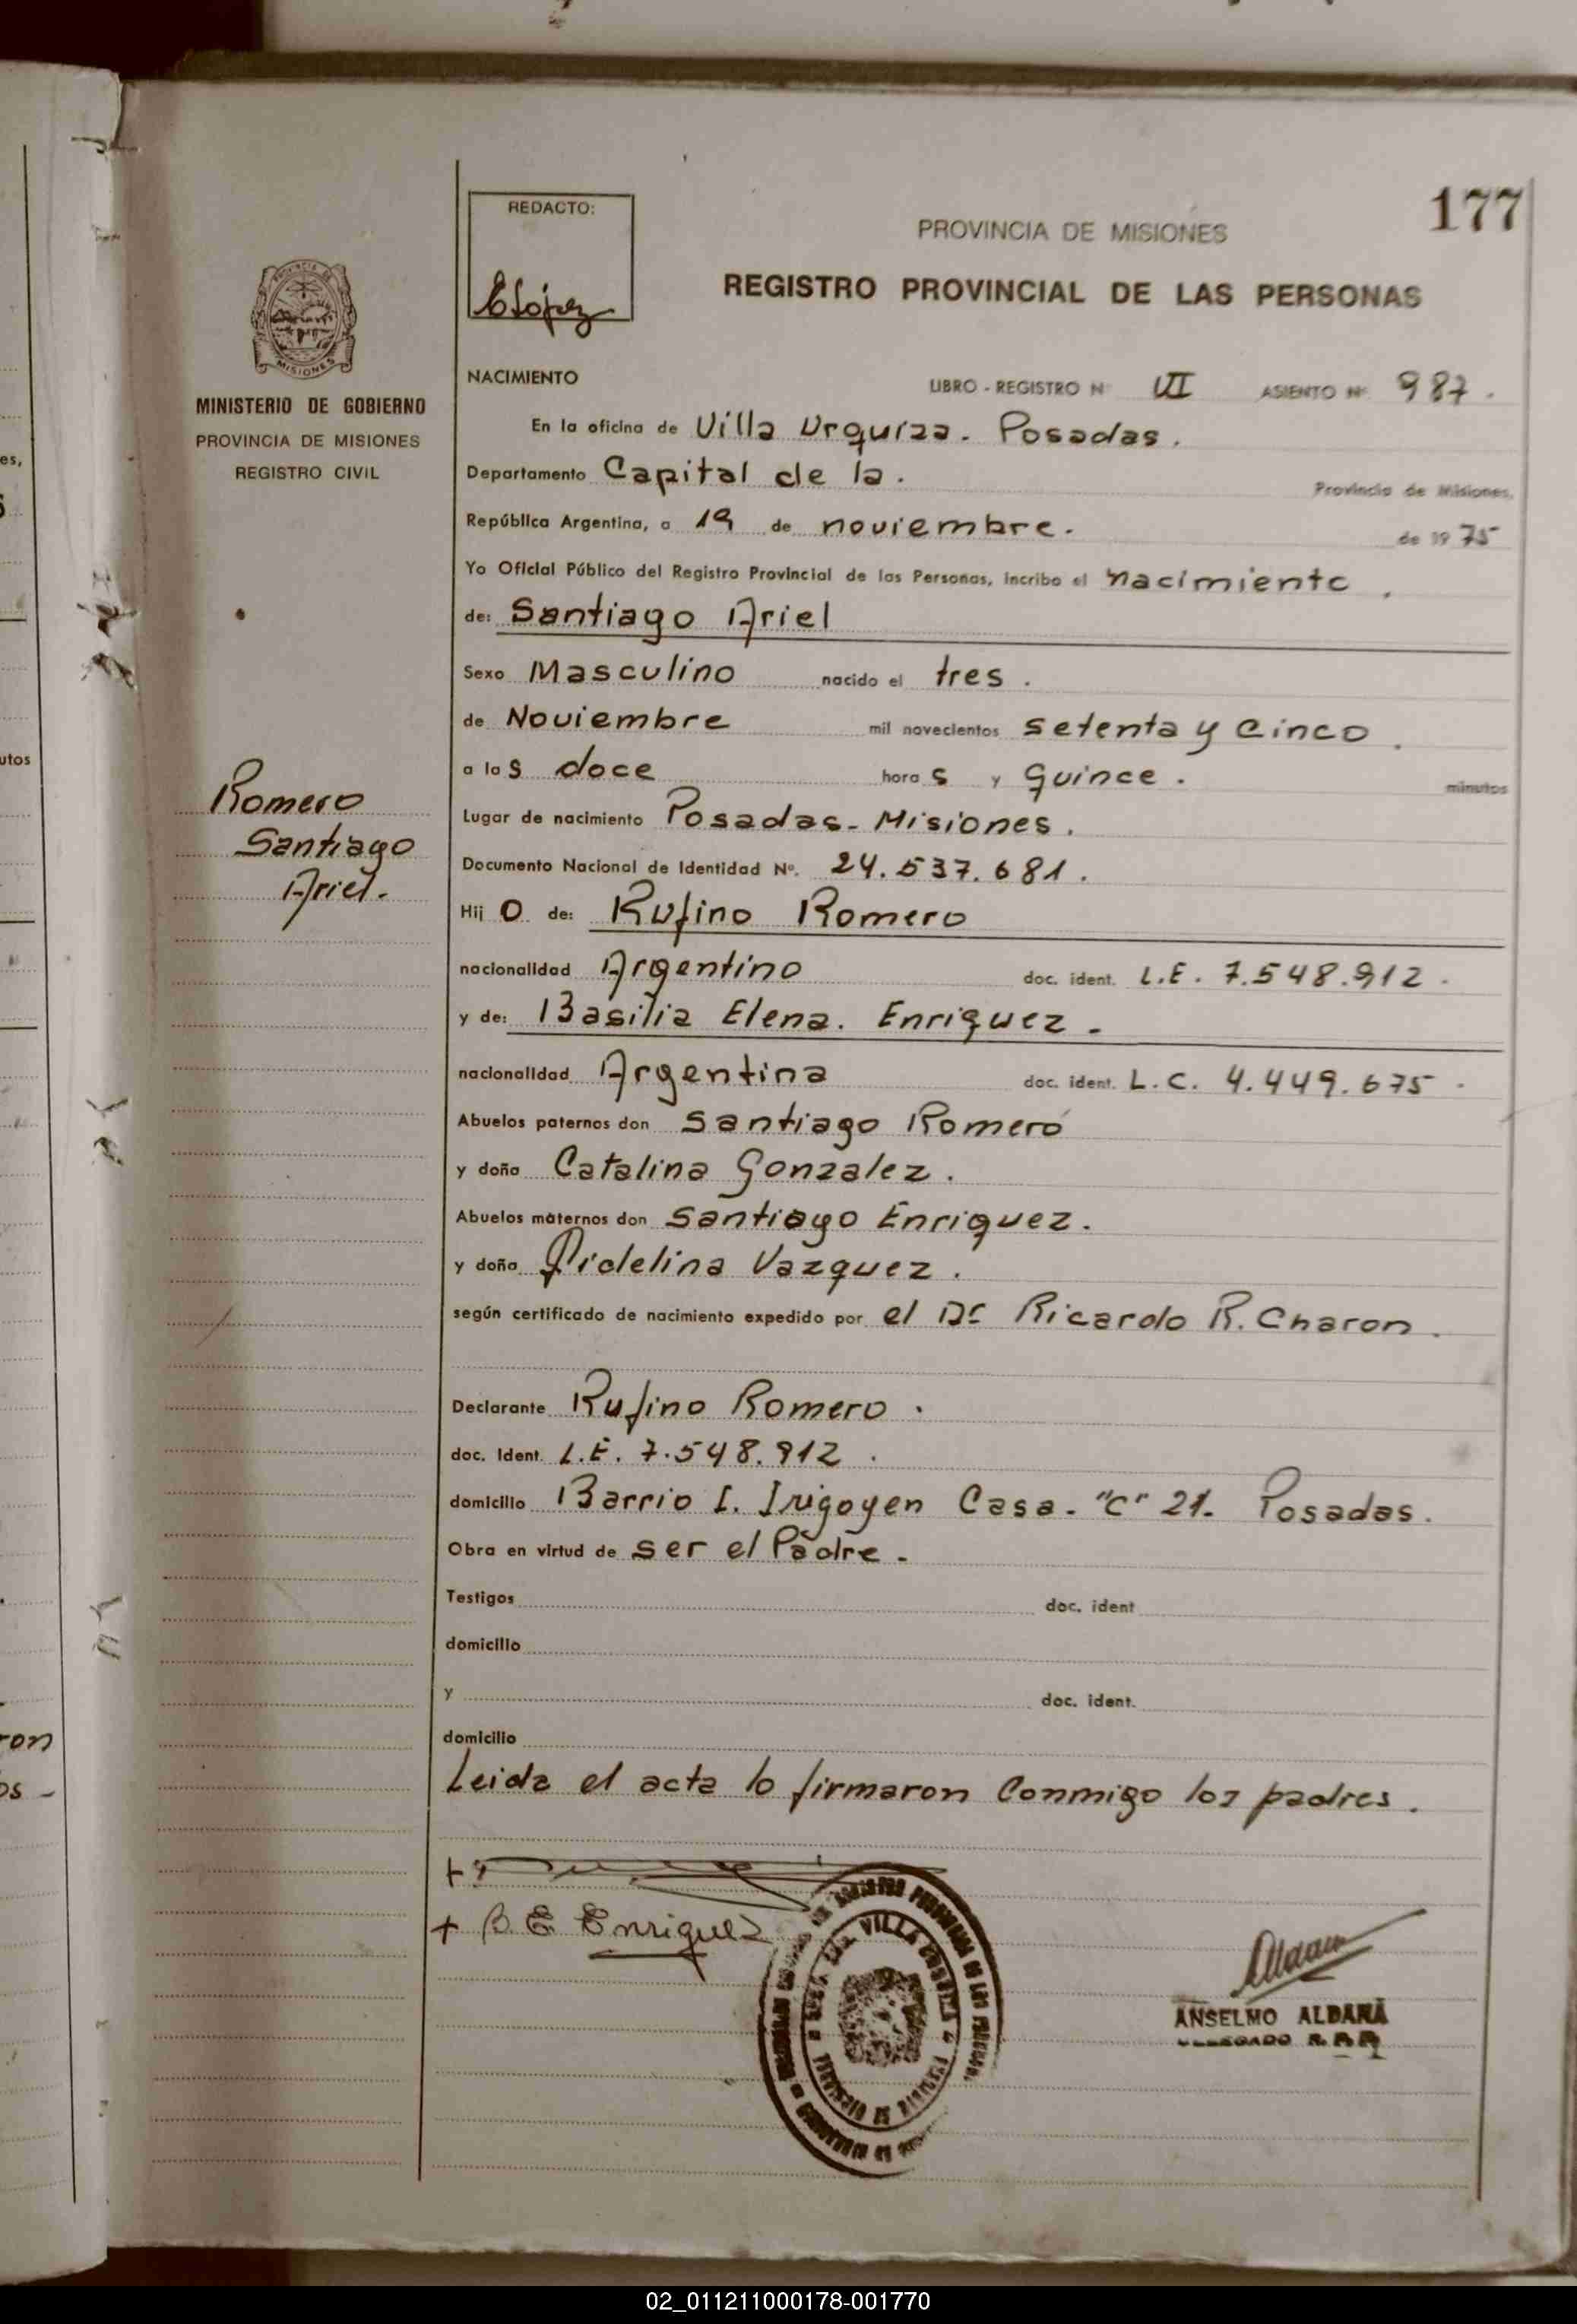 177
REDACTO:
ELópez
PROVINCIA DE MISIONES
REGISTRO PROVINCIAL DE LAS PERSONAS
MISIONES
MINISTERIO DE GOBIERNO
PROVINCIA DE MISIONES
REGISTRO CIVIL
NACIMIENTO LIBRO - REGISTRO Nº VI ASIENTO Nº 987.
En la oficina de Villa Urquiza. Posadas.
Departamento Capital de la. Provincia de Misiones,
República Argentina, a 19 de noviembre. de 1975
Yo Oficial Público del Registro Provincial de las Personas, incribo el nacimiento.
de: Santiago Ariel
Sexo Masculino nacido el tres.
de Noviembre mil novecientos setenta y cinco.
a las doce horas y quince. minutos
Romero
Santiago
Ariel.
Lugar de nacimiento Posadas - Misiones.
Documento Nacional de Identidad Nº. 24.537.681.
Hijo de: Rufino Romero
nacionalidad Argentino doc. ident. L.E. 7.548.912.
y de: Basilia Elena. Enriquez -
nacionalidad Argentina doc. ident. L.C. 4.449.675.
Abuelos paternos don Santiago Romero
y doña Catalina Gonzalez.
Abuelos maternos don Santiago Enriquez.
y doña Fidelina Vazquez.
según certificado de nacimiento expedido por el Dr Ricardo R. Charon.
Declarante Rufino Romero.
doc. Ident. L.E. 7.548.912.
domicilio Barrio I. Irigoyen Casa - "C" 21 - Posadas.
Obra en virtud de ser el Padre -
Testigos doc. ident
domicilio
y doc. ident.
domicilio
Leida el acta lo firmaron conmigo los padres.
+ B. E. Enriquez
VILLA URQUIZA
ANSELMO ALDANA
DELEGADO R.P.P.
es,
utos
ron
os -
02_011211000178-001770